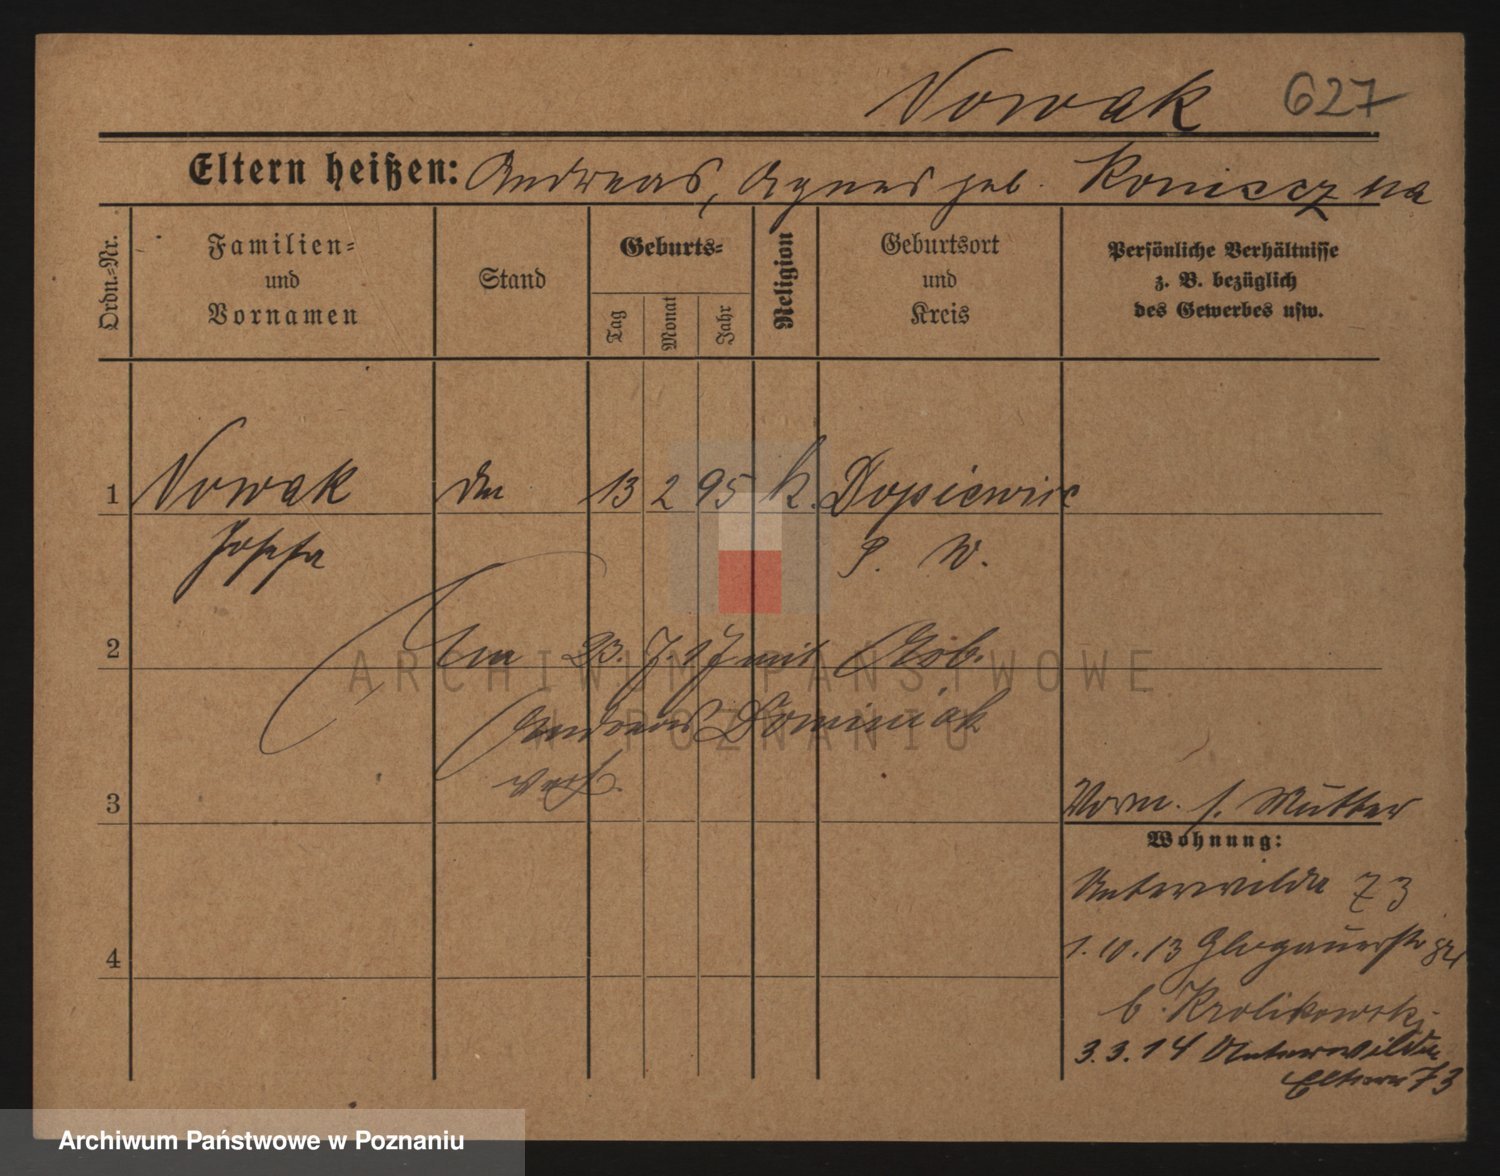 Nowak 627
Eltern heißen: Andreas, Agnes geb. Konieczna
Ordn.-Nr.
Familien-
und
Vornamen
Stand
Geburts-
Tag
Monat
Jahr
Religion
Geburtsort
und
Kreis
Persönliche Verhältnisse
z. B. bezüglich
des Gewerbes usw.
1 Nowak 13 2 95 k. Dopiewiec
Josefa P. W.
2 Am 23. 7. 17 mit
Andreas Dominiak
verh.
3 Vorm. s. Mutter
Wohnung:
Unterwilda 73
1. 10. 13 Glogauerstr
4
b. Krolikowski
3. 3. 14 Unterwilda
Eltern 73
ARCHIWUM PAŃSTWOWE
W POZNANIU
Archiwum Państwowe w Poznaniu